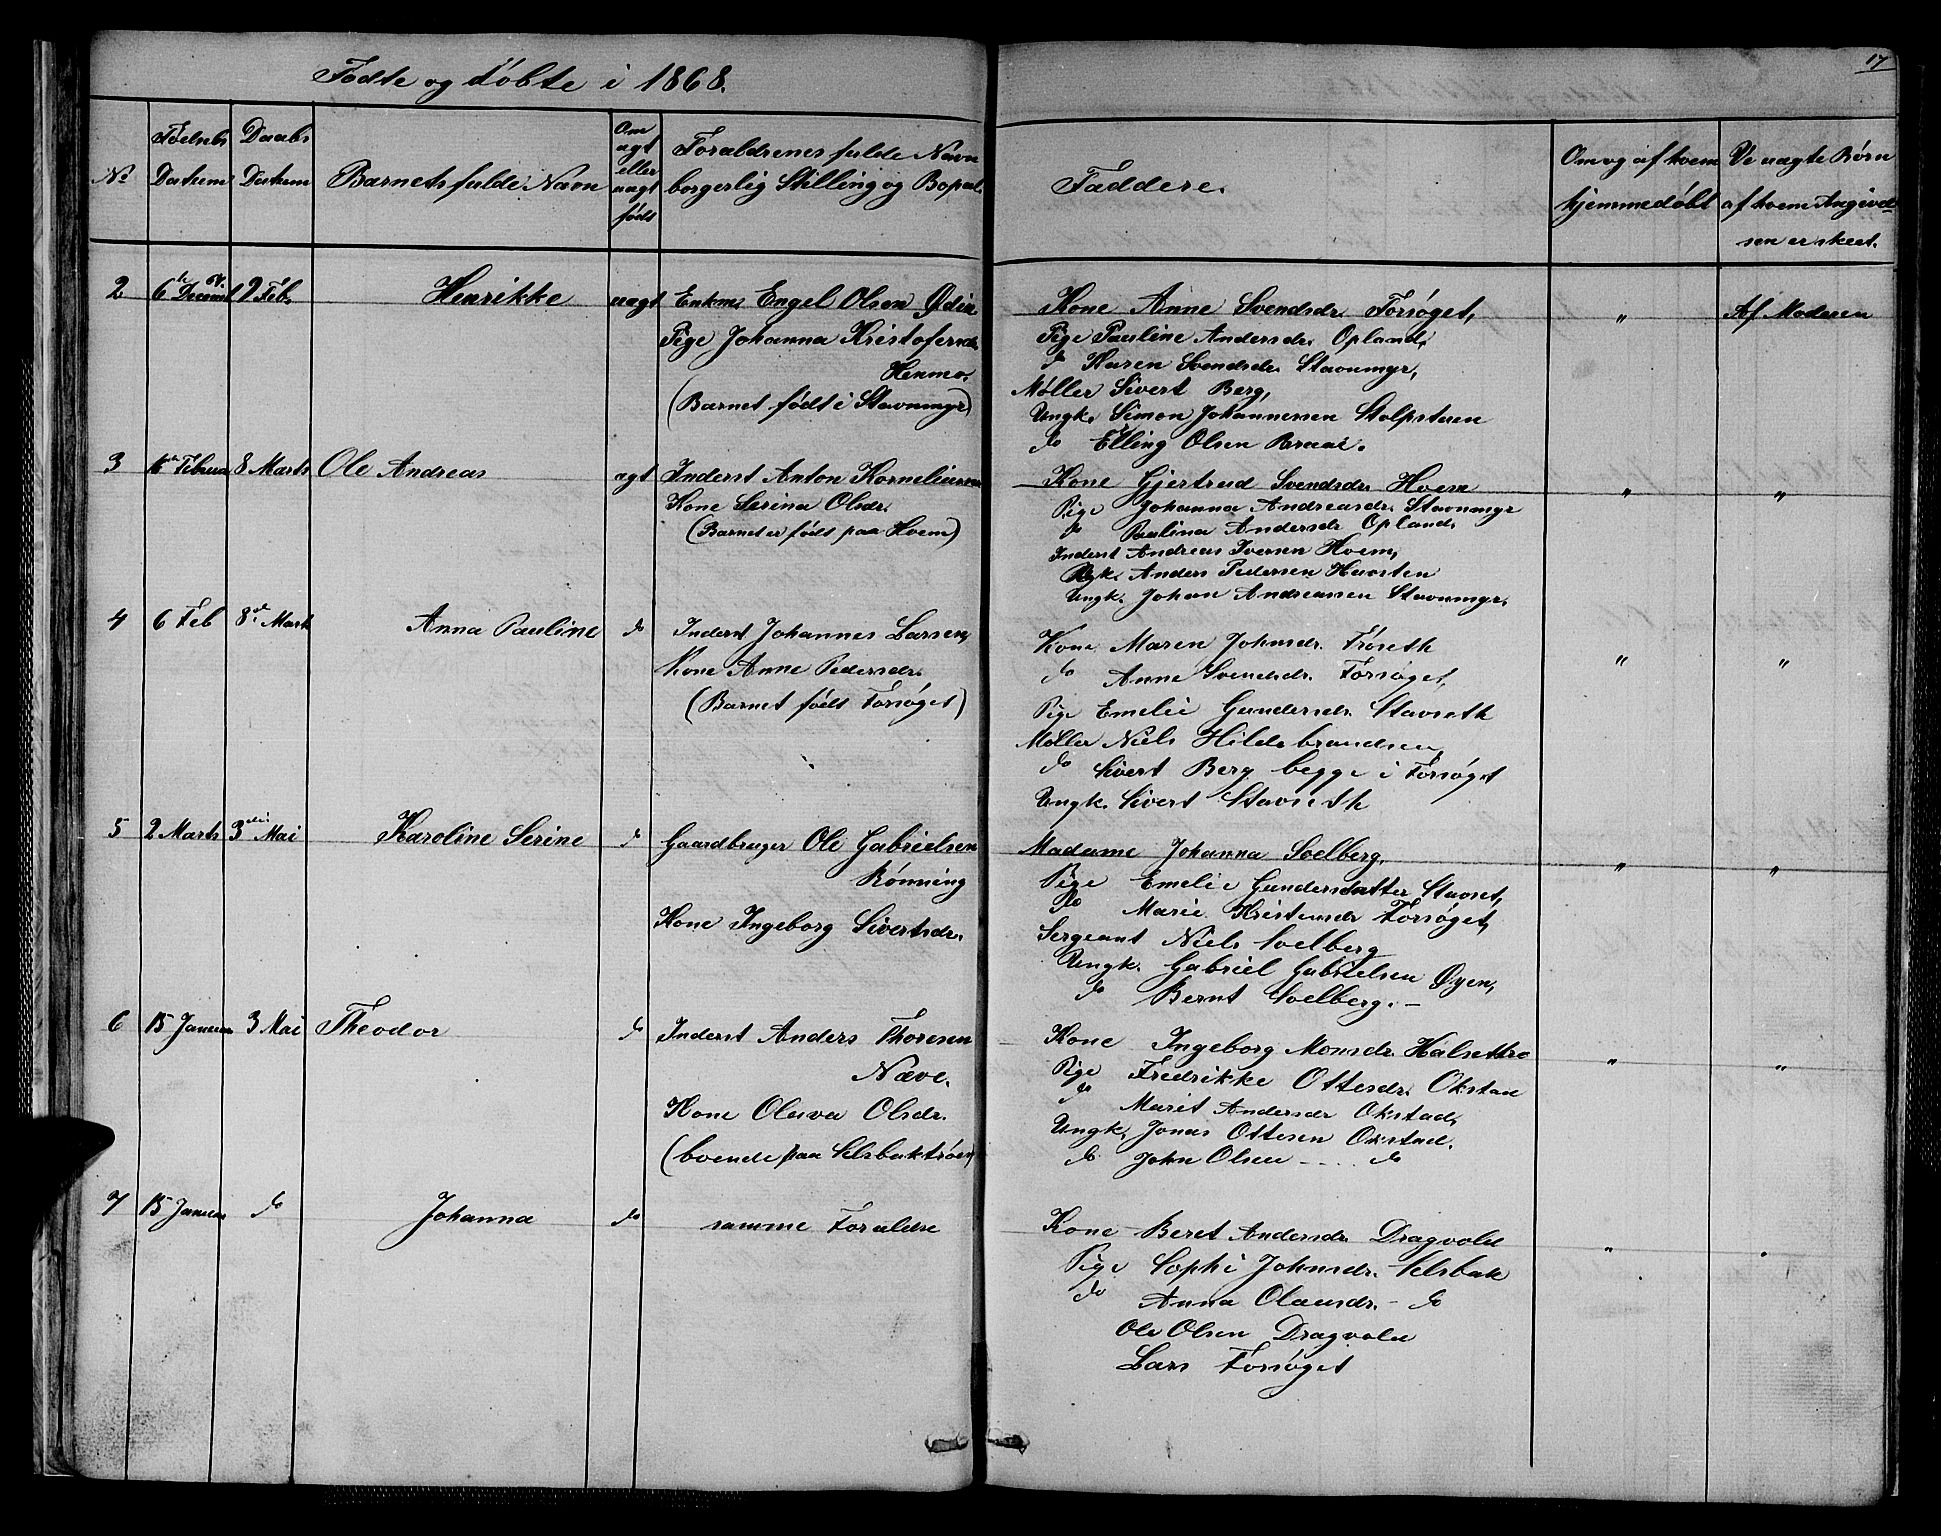 Fødte og døbte i 1868.
17
No
Fødsels Datum
Daabs Datum
Barnets fulde Navn
Om ægt eller uægt født
Forældrenes fulde Navn borgerlig Stilling og Bopæl.
Faddere.
Om og af hvem hjemmedøbt
Ved uægte Børn af hvem Angivelsen er skeet.
2 6te Decembr 67. 9 Feb. Henrikke uægt Enkm. Engel Olsen Ødin
Pige Johanna Kristofersd.
Henmo.
(Barnet født i Stavnmyr)
Kone Anne Svendsdr. Forsøget, " Af Moderen
Pige Pauline Andersdr. Opland,
do Karen Svendsdr. Stavnmyr,
Møller Sivert Berg,
Ungk. Simon Johannessen Stolpstuen
do Elling Olsen Braae.
3 15de Februar 8 Marts Ole Andreas ægt Inderst Anton Korneliussen
Kone Serina Olsdr.
(Barnet er født paa Hvem)
Kone Gjertrud Svendsdr. Hvem " "
Pige Johanna Andreasdr. Stavnmyr
do Paulina Andersdr. Opland,
Inderst Andreas Iversen Hvem,
Ungk. Anders Pedersen Havsten
Ungk. Johan Andreassen Stavnmyr.
4 6 Feb 8de Marts Anna Pauline do Inderst Johannes Larsen,
Kone Anne Pedersdr.
(Barnet født Forsøget)
Kone Maren Johnsdr. Trøseth " "
do Anne Svendsdr. Forsøget,
Pige Emelie Gundersdr. Stavseth
Møller Niels Hildebrandsen,
do Sivert Berg begge i Forsøget
Ungk. Sivert Stavseth
5 2 Marts 3die Mai Karoline Serine do Gaardbruger Ole Gabrielsen
Rønning
Kone Ingeborg Sivertsdr.
Madame Johanna Solberg, " "
Pige Emelie Gundersdatter Stavset,
do Marie Kristensdr Forsøget,
Sergeant Niels Solberg
Ungk. Gabriel Gabrielsen Øyen,
do Bernt Solberg. –
6 15 Januar 3 Mai Theodor do Inderst Anders Thoresen
Næve.
Kone Oluva Olsdr.
(boende paa Selsbaktrøen)
Kone Ingeborg Monsdr. Halsettrø " "
Pige Fredrikke Ottesdr. Okstad
do Marit Andersdr Okstad,
Ungk. Jonas Ottesen Okstad.
do John Olsen – ... do
7 15 Januar do Johanna do samme Forældre
Kone Beret Andersdr. Dragvold " "
Pige Sophi Johnsdr. Selsbak
do Anna Olausdr. – do
Ole Olsen Dragvold
Lars Forsøget